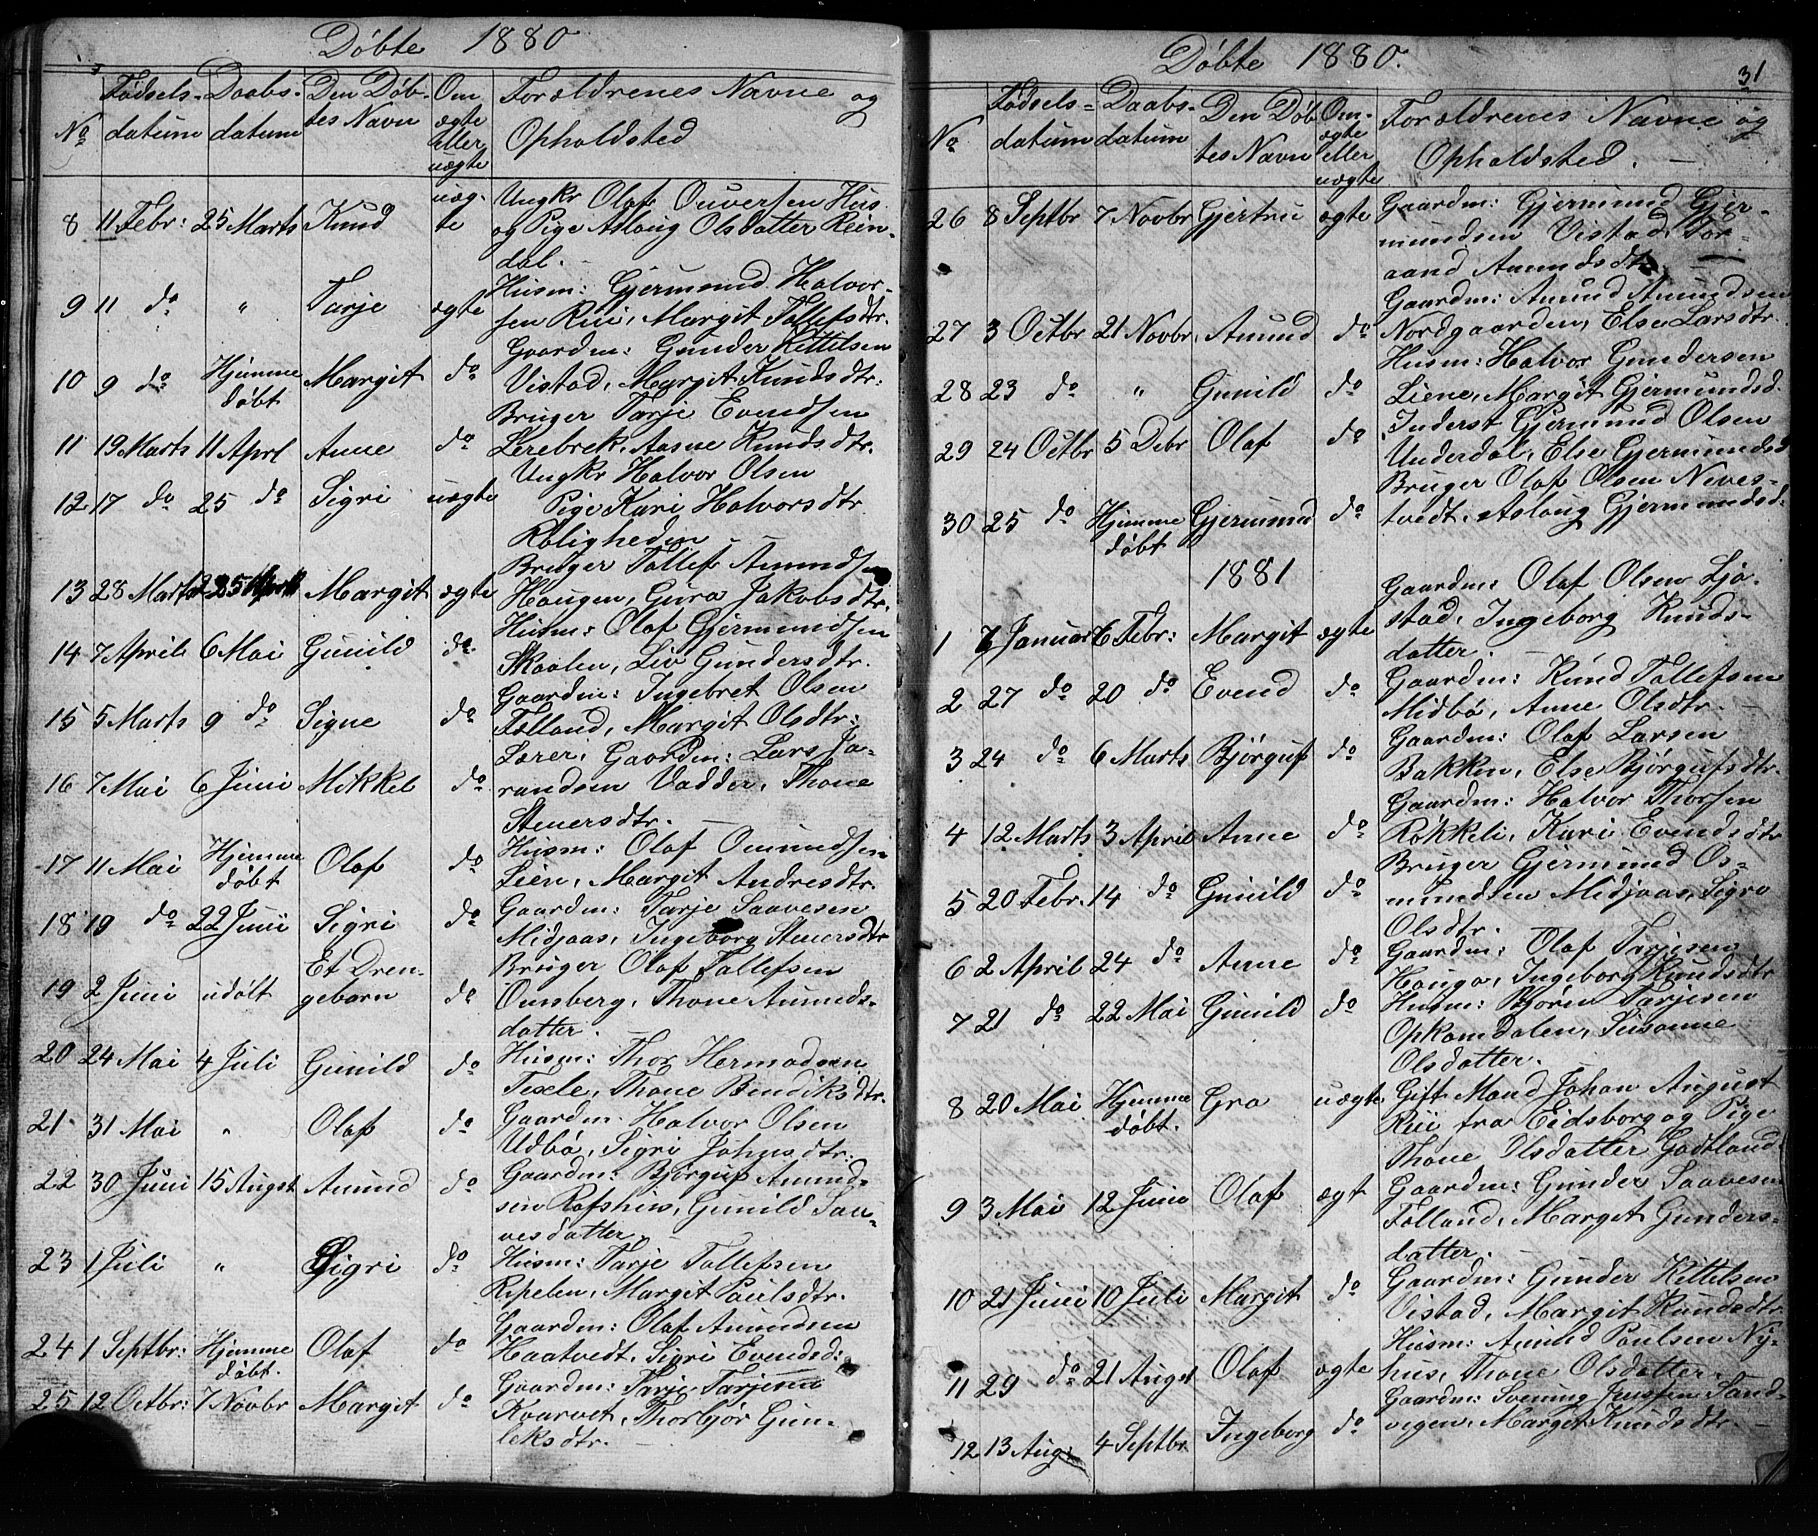 Døbte 1880
No Fødsels- datum Daabs- datum Den Døb- tes Navn Om ægte eller uægte Forældrenes Navne og Opholdsted
8 11 Febr: 25 Marts Knud uæg- te Ungkr Olaf Ouversen Hus
og Pige Asloug Olsdatter Rein-
dal.
9 11 do " Tarje ægte Husm: Gjermund Halvor-
sen Rui, Margit Tollefsdtr.
10 9 do Hjemme døbt Margit do Gaardm: Gunder Kittilsen
Vistad, Margit Knudsdtr:
11 19 Marts 11 Aprl Anne do Bruger Tarje Evendsen
Lerebrek, Aasne Knudsdtr.
12 17 do 25 do Sigri uægte Ungkr Halvor Olsen
Pige Kari Halvorsdtr
Roligheden
13 28 Marts 25 April Margit ægte Bruger Tollef Amundsen
Haugen, Gura Jakobsdtr.
14 7 April 6 Mai Gunild do Husm: Olaf Gjermundsen
Skaalen, Liv Gundersdtr.
15 5 Marts 9 do Signe do Gaardm: Ingebret Olsen
Folland, Margit Olsdtr:
16 7 Mai 6 Juni Mikkel do Lærer, Gaardm: Lars Ja-
randsen Vadder, Thone
Steuersdtr.
17 11 Mai Hjemme døbt Olaf do Husm: Olaf Omundsen
Lien, Margit Andresdtr.
18 19 do 22 Juni Sigri do Gaardm: Tarje Saavesen
Midjaas, Ingeborg Steuersdtr
19 2 Juni udølt Et Dren- gebarn do Bruger Olaf Tollefsen
Ounsberg, Thone Amunds-
datter.
20 24 Mai 4 Juli Gunild do Husm: Thor Hermodsen
Texle, Thone Bendiksdtr.
21 31 Mai " Olaf do Gaardm. Halvor Olsen
Udbø, Sigri Johnsdtr:
22 30 Juni 15 Augst Amund do Gaardm: Bjørguf Amund-
sen Rofshus, Gunild Saa-
vesdatter.
23 1 Juli " Sigri do Husm: Tarje Tollefsen
Ripelen, Margit Paulsdtr.
24 1 Septbr: Hjemme døbt. Olaf do Gaardm: Olaf Amundsen
Haatvedt, Sigri Evendsd:
25 12 Octbr: 7 Novbr Margit do Gaardm: Tarje Tarjesen
Kvarvet, Thorbjør Gun-
leksdtr.
Døbte 1880.
31
No Fødsels- datum Daabs- datum Den Døb tes Navn Om- ægte eller uægte Forældrenes Navne og Opholdsted.
26 8 Septbr 7 Novbr Gjertru ægte Gaardm: Gjermund Gjer-
mundsen Vistad, Tor-
aand Amundsdtr
27 3 Octbr 21 Novbr. Amund do Gaardm: Amund Amundsen
Nordgaarden, Else Larsdtr.
28 23 do " Gunild do Husm: Halvor Gundersen
Liene, Margit Gjermundsd.
29 24 Octbr 5 Debr Olaf do Inderst Gjermund Olsen
Underdal, Else Gjermundsd
30 25 do Hjemme døbt Gjermund do Bruger Olaf Olsen Neves-
tvedt, Aslaug Gjermundsd.
1881
1 7 Januar 6 Febr: Margit ægte Gaardm: Olaf Olsen Ljo-
stad, Ingeborg Knuds-
datter.
2 27 do 20 do Evend do Gaardm: Knud Tollefsen
Midbø, Anne Olsdtr.
3 24 do 6 Marts Bjørguf do Gaardm: Olaf Larsen
Bakken, Else Bjørgufsdtr.
4 12 Marts 3 April Anne do Gaardm: Halvor Thorsen
Røkkeli, Kari Evendsdtr
5 20 Febr. 14 do Gunild do Bruger Gjermund Os-
mundsen Midjaas, Sigro
Olsdtr.
6 2 April 24 do Anne do Gaardm: Olaf Tarjesen
Hauga, Ingeborg Knudsdtr
7 21 do 22 Mai Gunild do Husm: Bjørn Tarjesen
Opkomdalen, Susanne
Olsdatter.
8 20 Mai Hjemme døbt. Gro uægte Gift Mand Johan August
Rui fra Eidsborg og Pige
Thone Olsdatter Godtland
9 3 Mai 12 Juni Olaf ægt Gaardm: Gunder Saavesen
Folland, Marget Gunders-
datter.
10 21 Juni 10 Juli Margit do Gaardm: Gunder Kittelsen
Vistad, Margit Knudsdtr
11 29 do 21 Augst Olaf ægte Husm: Amund Paulsen Ny-
hus, Thone Olsdatter.
12 13 Aug: 4 Septbr. Ingeborg do Gaardm: Svening Jenssen Sand-
vigen, Marget Knudsdtr.